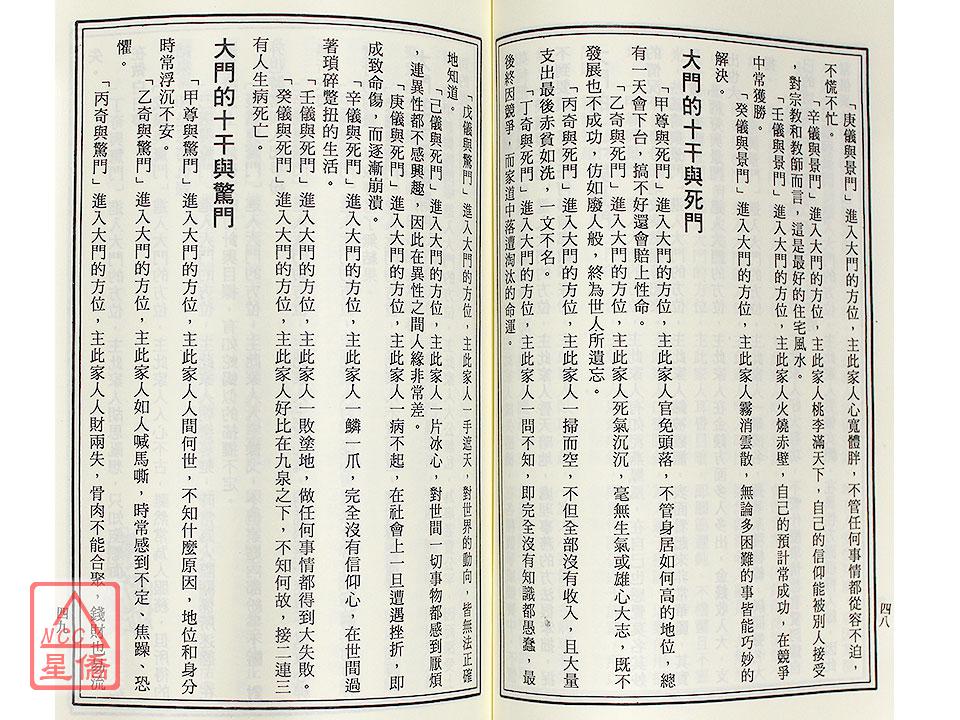 「庚儀與景門」進入大門的方位，主此家人心寬體胖，不管任何事情都從容不迫，
不慌不忙。
「辛儀與景門」進入大門的方位，主此家人桃李滿天下，自己的信仰能被別人接受
，對宗教和教師而言，這是最好的住宅風水。
「壬儀與景門」進入大門的方位，主此家人火燒赤壁，自己的預計常成功，在競爭
中常獲勝。
「癸儀與景門」進入大門的方位，主此家人霧消雲散，無論多困難的事皆能巧妙的
解決。
大門的十干與死門
「甲尊與死門」進入大門的方位，主此家人官免頭落，不管身居如何高的地位，總
有一天會下台，搞不好還會賠上性命。
「乙奇與死門」進入大門的方位，主此家人死氣沉沉，毫無生氣或雄心大志，既不
發展也不成功，仿如廢人般，終為世人所遺忘。
「丙奇與死門」進入大門的方位，主此家人一掃而空，不但全部沒有收入，且大量
支出最後赤貧如洗，一文不名。
「丁奇與死門」進入大門的方位，主此家人一問不知，即完全沒有知識都愚蠢，最
後終因競爭，而家道中落遭淘汰的命運。
四八
「戊儀與驚門」進入大門的方位，主此家人一手遮天，對世界的動向，皆無法正確
地知道。
「己儀與死門」進入大門的方位，主此家人一片冰心，對世間一切事物都感到厭煩
，連異性都不感興趣，因此在異性之間人緣非常差。
「庚儀與死門」進入大門的方位，主此家人一病不起，在社會上一旦遭遇挫折，即
成致命傷，而逐漸崩潰。
「辛儀與死門」進入大門的方位，主此家人一鱗一爪，完全沒有信仰心，在世間過
著瑣碎蹩扭的生活。
「壬儀與死門」進入大門的方位，主此家人一敗塗地，做任何事情都得到大失敗。
「癸儀與死門」進入大門的方位，主此家人好比在九泉之下，不知何故，接二連三
有人生病死亡。
大門的十干與驚門
「甲尊與驚門」進入大門的方位，主此家人人間何世，不知什麼原因，地位和身分
時常浮沉不安。
「乙奇與驚門」進入大門的方位，主此家人如人喊馬嘶，時常感到不定、焦躁、恐
懼。
「丙奇與驚門」進入大門的方位，主此家人人財兩失，骨肉不能合聚，錢財也易流
四九
NCC
星僑